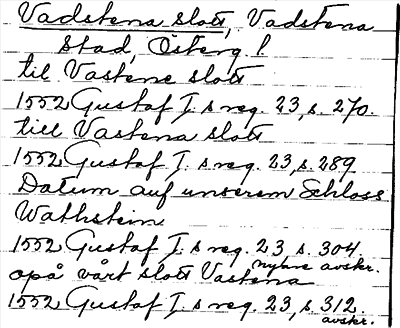 Vadstena slott, Vadstena
stad, Österg l.
til Vastene slott
1552 Gustaf I. s reg. 23, s. 270.
till Vastena slott
1552 Gustaf I. s reg. 23, s. 289
Datum auf unserem Schloss
Wathstein
1552 Gustaf I. s reg. 23 s. 304
nyare avskr.
opå vårt slott Vastena
1552 Gustaf I. s reg. 23, s. 312.
avskr.